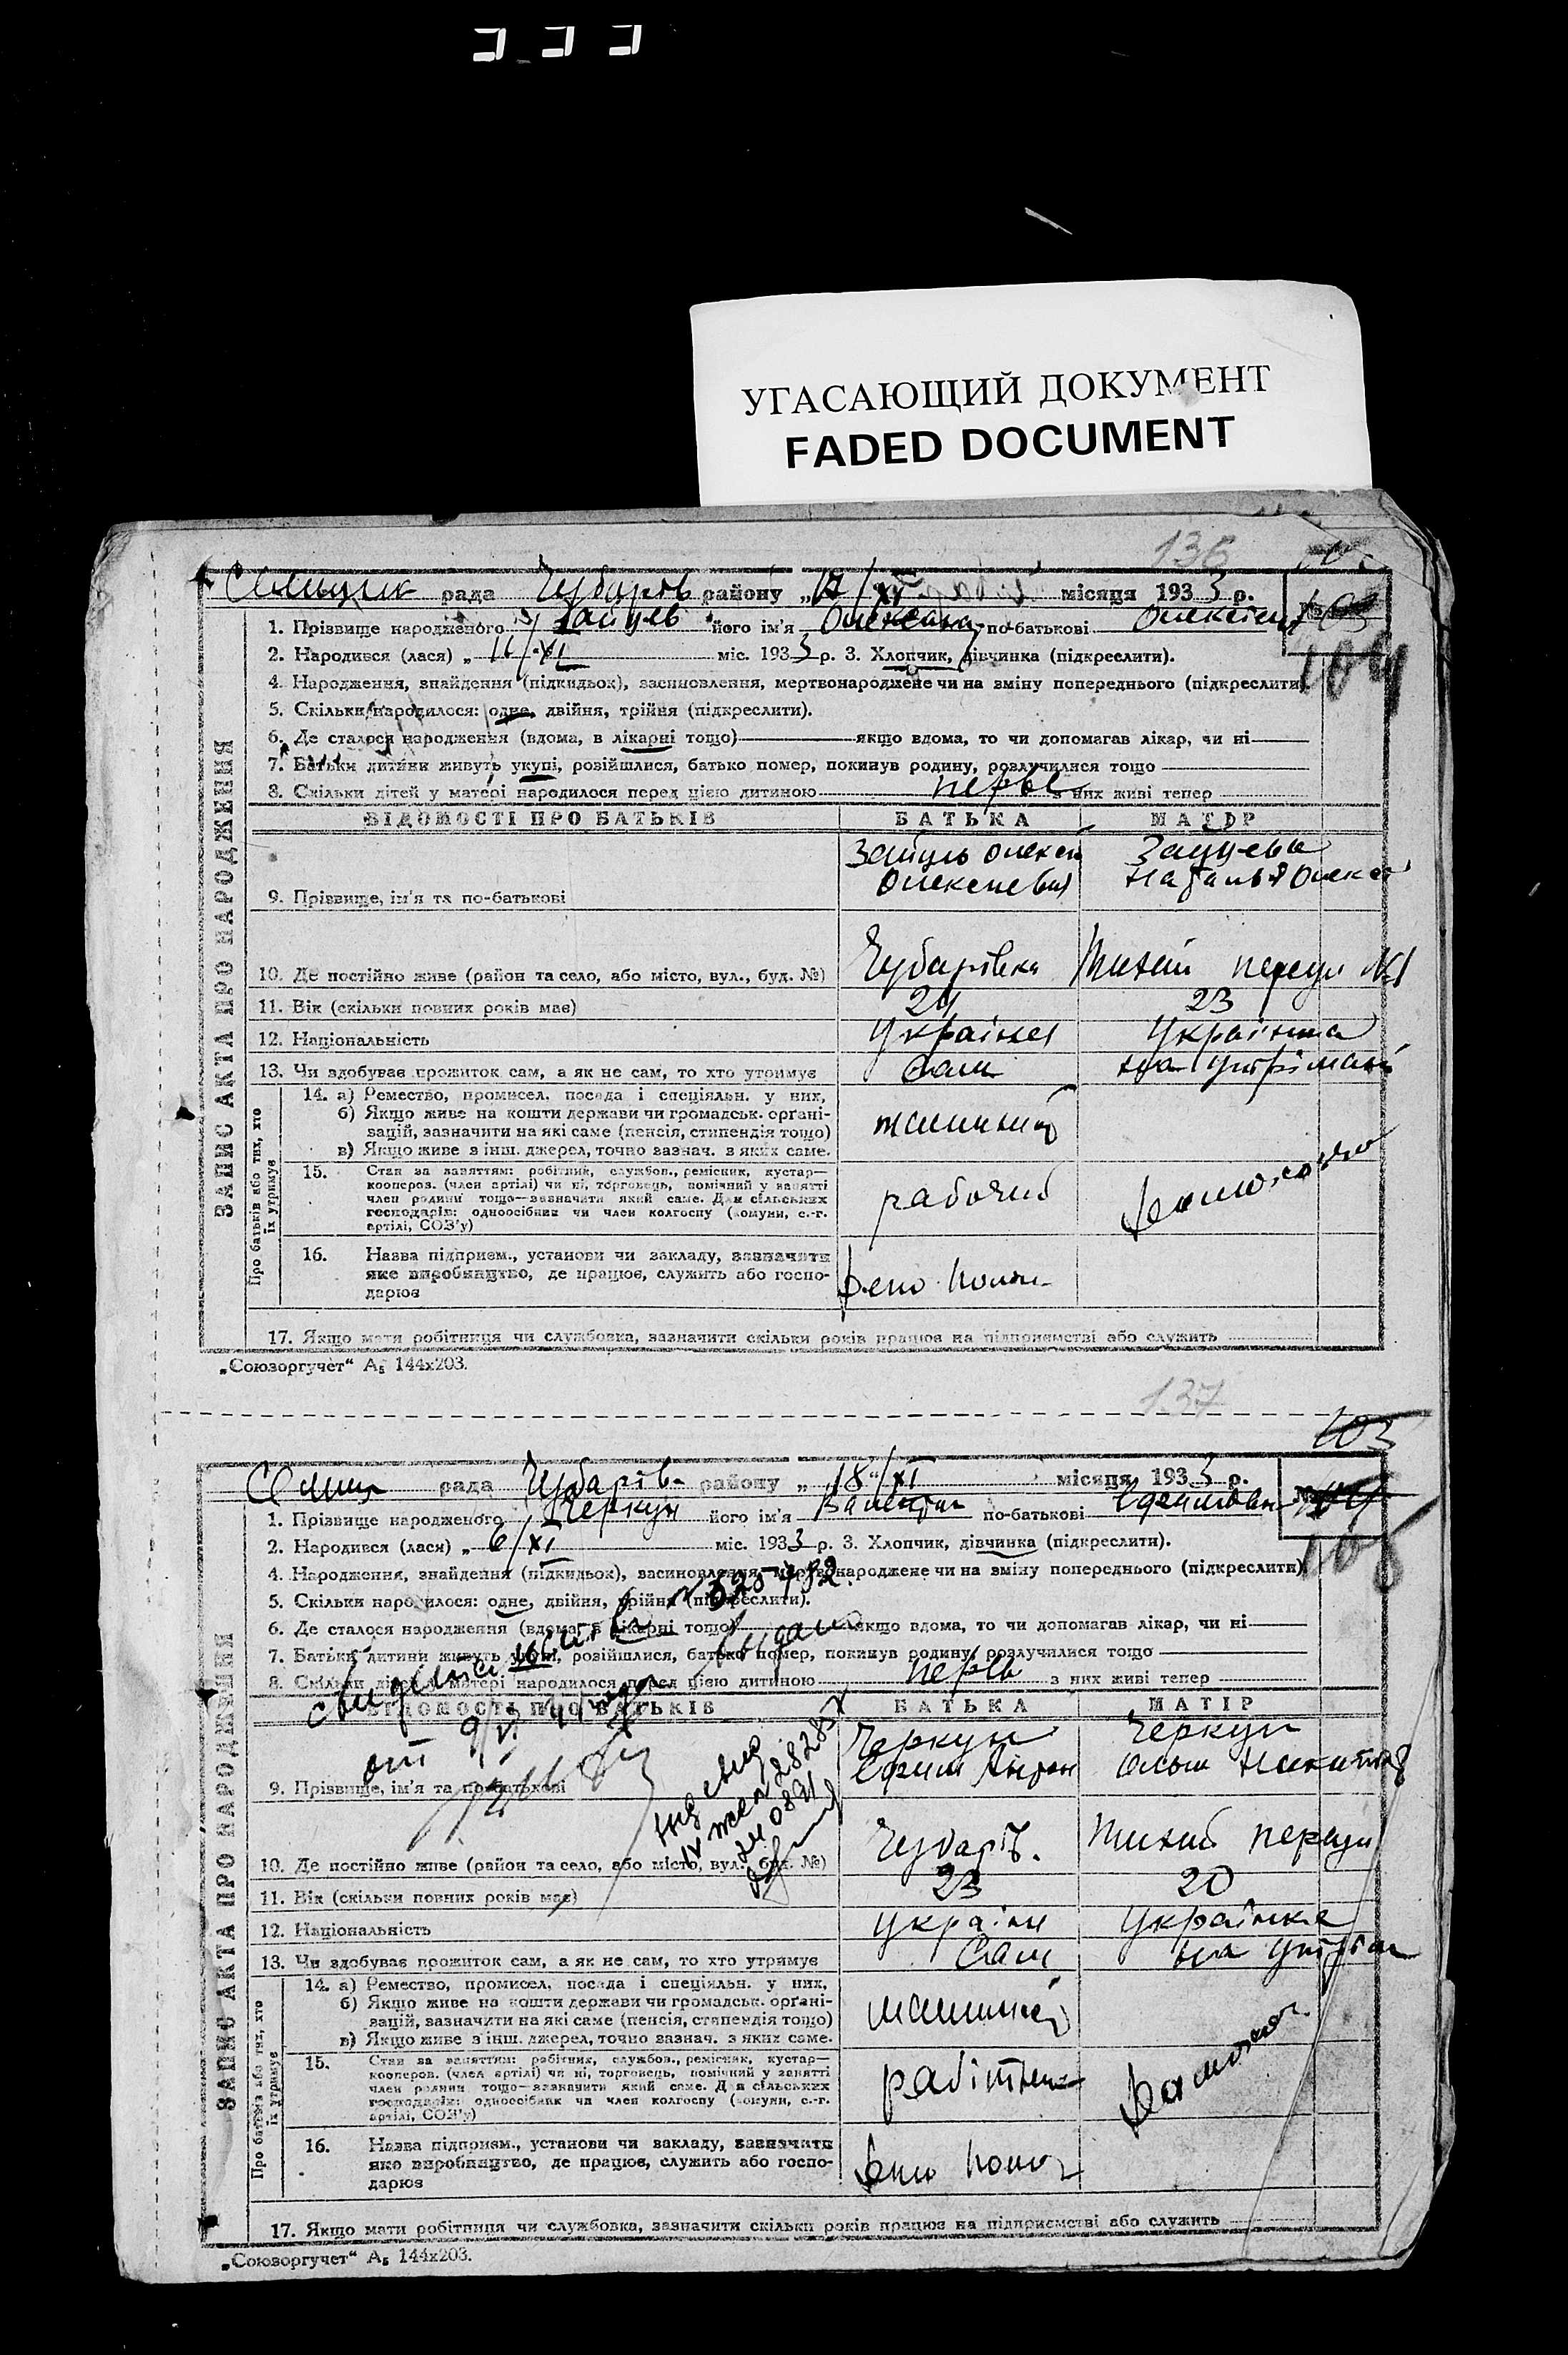 УГАСАЮЩИЙ ДОКУМЕНТ
FADED DOCUMENT
136
рада Чубарів району „17/XI місяця 1933 р.
№ 103
104
1. Прізвище народженого Зайцев його ім'я по-батькові
2. Народився (лася) „ 11/XI міс. 1933 р. 3. Хлопчик, дівчинка (підкреслити).
4. Народження, знайдення (підкидьок), засиновлення, мертвонароджене чи на зміну попереднього (підкреслити)
5. Скільки народилося: одне, двійня, трійня (підкреслити).
6. Де сталося народження (вдома, в лікарні тощо) якщо вдома, то чи допомагав лікар, чи ні
7. Батьки дитини живуть укупі, розійшлися, батько помер, покинув родину, розлучилися тощо
8. Скільки дітей у матері народилося перед цією дитиною перве з них живі тепер
ВІДОМОСТІ ПРО БАТЬКІВ БАТЬКА МАТІР
9. Прізвище, ім'я та по-батькові
Зайцев Олексій
Зайцева
10. Де постійно живе (район та село, або місто, вул., буд. №) Чубарівка Тихий переул №1
11. Вік (скільки повних років має) 24 23
12. Національність Українец Українка
13. Чи здобуває прожиток сам, а як не сам, то хто утримує Сам на утріманні
14. а) Ремество, промисел, посада і спеціяльн. у них,
б) Якщо живе на кошти держави чи громадськ. орґані-
зацій, зазначити на які саме (пенсія, стипендія тощо)
в) Якщо живе з інш. джерел, точно зазнач. з яких саме.
15. Стан за заняттям: робітник, службов., ремісник, кустар—
кооперов. (член артілі) чи ні, торговець, помічний у занятті
член родини тощо—зазначити який саме. Для сільських
господарів: одноосібник чи член колгоспу (комуни, с.-г.
артілі, СОЗ'у)
рабочий
домохоз
16. Назва підприєм., установи чи закладу, зазначити
яке виробництво, де працює, служить або госпо-
дарює
Депо Пологи
17. Якщо мати робітниця чи службовка, зазначити скільки років працює на підприємстві або служить
ЗАПИС АКТА ПРО НАРОДЖЕННЯ
Про батьків або тих, хто
їх утримує
„Союзоргучёт“ А5 144х203.
137
103
рада Чубарів- району „18“/XI місяця 1933 р.
№ 104
105
1. Прізвище народженого Черкун його ім'я Валентин по-батькові
2. Народився (лася) „ 6/XI міс. 1933 р. 3. Хлопчик, дівчинка (підкреслити).
4. Народження, знайдення (підкидьок), засиновлення, мертвонароджене чи на зміну попереднього (підкреслити)
5. Скільки народилося: одне, двійня, трійня (підкреслити).
6. Де сталося народження (вдома, в лікарні тощо) якщо вдома, то чи допомагав лікар, чи ні
7. Батьки дитини живуть укупі, розійшлися, батько помер, покинув родину, розлучилися тощо
8. Скільки дітей у матері народилося перед цією дитиною перв з них живі тепер
ВІДОМОСТІ ПРО БАТЬКІВ БАТЬКА МАТІР
9. Прізвище, ім'я та по-батькові
Черкун
Черкун
10. Де постійно живе (район та село, або місто, вул., буд. №) Чубарів. Тихий переул
11. Вік (скільки повних років має) 23 20
12. Національність Українц Українка
13. Чи здобуває прожиток сам, а як не сам, то хто утримує Сам на утріман
14. а) Ремество, промисел, посада і спеціяльн. у них,
б) Якщо живе на кошти держави чи громадськ. орґані-
зацій, зазначити на які саме (пенсія, стипендія тощо)
в) Якщо живе з інш. джерел, точно зазнач. з яких саме.
15. Стан за заняттям: робітник, службов., ремісник, кустар—
кооперов. (член артілі) чи ні, торговець, помічний у занятті
член родини тощо—зазначити який саме. Для сільських
господарів: одноосібник чи член колгоспу (комуни, с.-г.
артілі, СОЗ'у)
домохоз
16. Назва підприєм., установи чи закладу, зазначити
яке виробництво, де працює, служить або госпо-
дарює
Депо Полог
17. Якщо мати робітниця чи службовка, зазначити скільки років працює на підприємстві або служить
ЗАПИС АКТА ПРО НАРОДЖЕННЯ
Про батьків або тих, хто
їх утримує
„Союзоргучет“ А5 144х203.